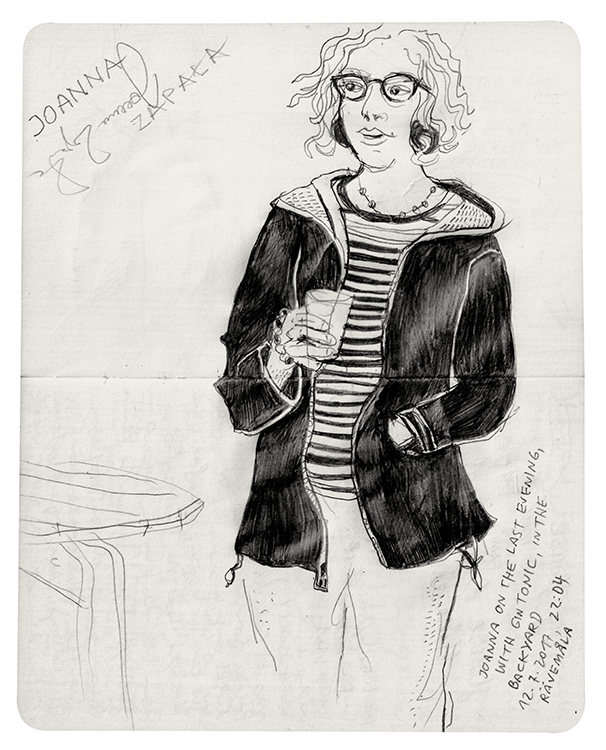 JOANNA
ZAPAŁA
JOANNA ON THE LAST EVENING,
WITH GIN TONIC, IN THE
BACKYARD
12.7.2017 22:04
RÄVEMÅLA